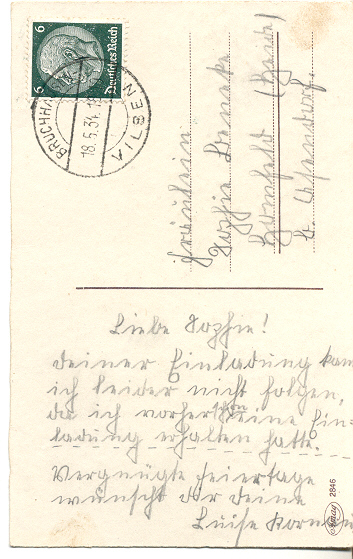 6 6
Deutsches Reich
BRUCHHAUSEN
VILSEN
18.5.34.
Fräulein
Sophie
Homfeld
Liebe Sophie!
Deiner Einladung kam
ich leider nicht folgen,
da ich vorher schon eine Ein=
ladung erhalten hatte.
Vergnügte Feiertage
wünscht dir deine
Luise
2846